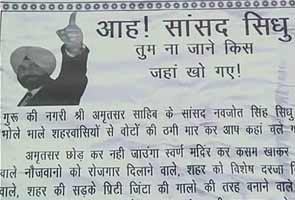 आह! सांसद सिधु
तुम ना जाने किस
जहां खो गए!
गुरू की नगरी श्री अमृतसर साहिब के सांसद नवजोत सिंह सिधु
भोले भाले शहरवासियों से वोटों की ठगी मार कर आप कहां चले ग
अमृतसर छोड़ कर नही जाउंगा स्वर्ण मंदिर कर कसम खाकर
वाले नौजवानो को रोजगार दिलाने वाले, शहर को विशेष दरजा दि
वाले, शहर की सड़के प्रिटी जिंटा की गालो की तरह बनाने वाले,